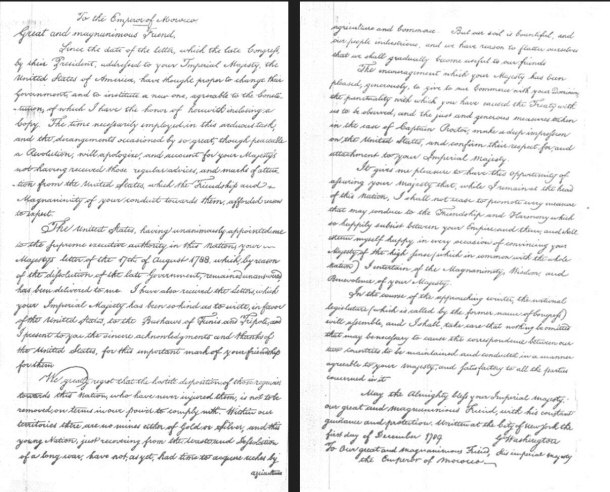 To the Emperor of Morocco
Great and magnanimous Friend,
Since the date of the letter, which the late Congress,
by their President, addressed to your Imperial Majesty, the
United States of America, have thought proper to change their
Government, and to institute a new one, agreeable to the Consti-
tution, of which I have the honor of herewith inclosing a
Copy. The time necessarily employed in this arduous task,
and the derangements occasioned by so great, though peaceable
a Revolution, will apologise, and account for your Majesty's
not having received those regular advices, and marks of atten-
tion from the United States, which the Friendship and
Magnanimity of your conduct towards them, afforded reason
to expect.
The United States, having unanimously appointed me
to the supreme executive authority in this Nation, your
Majesty's letter of the 17th of August 1788, which, by reason
of the dissolution of the late Government, remained unanswered
has been delivered to me. I have also received the letters, which
your Imperial Majesty has been so kind as to write, in favor
of the United States, to the Bashaws of Tunis and Tripoli, and
I present to you the sincere acknowledgments and thanks of
the United States, for this important mark of your friendship
for them
We greatly regret that the hostile disposition of those regencies
towards this Nation, who have never injured them, is not to be
removed, on terms in our power to comply with. Within our
territories there are no mines either of Gold or Silver, and this
young Nation, just recovering from the Waste and Desolation
of a long war, have not, as yet, had time to acquire riches by
agriculture
agriculture and Commerce But our soil is bountiful, and
our people industrious, and we have reason to flatter ourselves
that we shall gradually become useful to our friends
The encouragement which your Majesty has been
pleased, generously, to give to our Commerce with your Dominions,
the punctuality with which you have caused the Treaty with
us to be observed, and the just and generous measures taken
in the case of Captain Proctor, make a deep impression
on the United States, and confirm their respect for, and
attachment to your Imperial Majesty.
It gives me pleasure to have this opportunity of
assuring your Majesty that, while I remain at the head
of this Nation, I shall not cease to promote every measure
that may conduce to the Friendship and Harmony which
so happily subsist between your Empire and them, and shall
esteem myself happy in every occasion of convincing your
Majesty of the high sense (which in common with the whole
nation) I entertain of the Magnanimity, Wisdom and
Benevolence of your Majesty.
In the course of the approaching winter, the national
legislature (which is called by the former name of Congress)
will assemble, and I shall take care that nothing be omitted
that may be necessary to cause the correspondence between our
two countries to be maintained and conducted in a manner
agreeable to your Majesty, and satisfactory to all the parties
concerned in it
May the Almighty bless your Imperial Majesty,
our great and magnanimous Friend, with his constant
guidance and protection. Written at the City of New York the
first day of December 1789 G Washington
To Our great and magnanimous Friend, His imperial majesty
the Emperor of Morocco